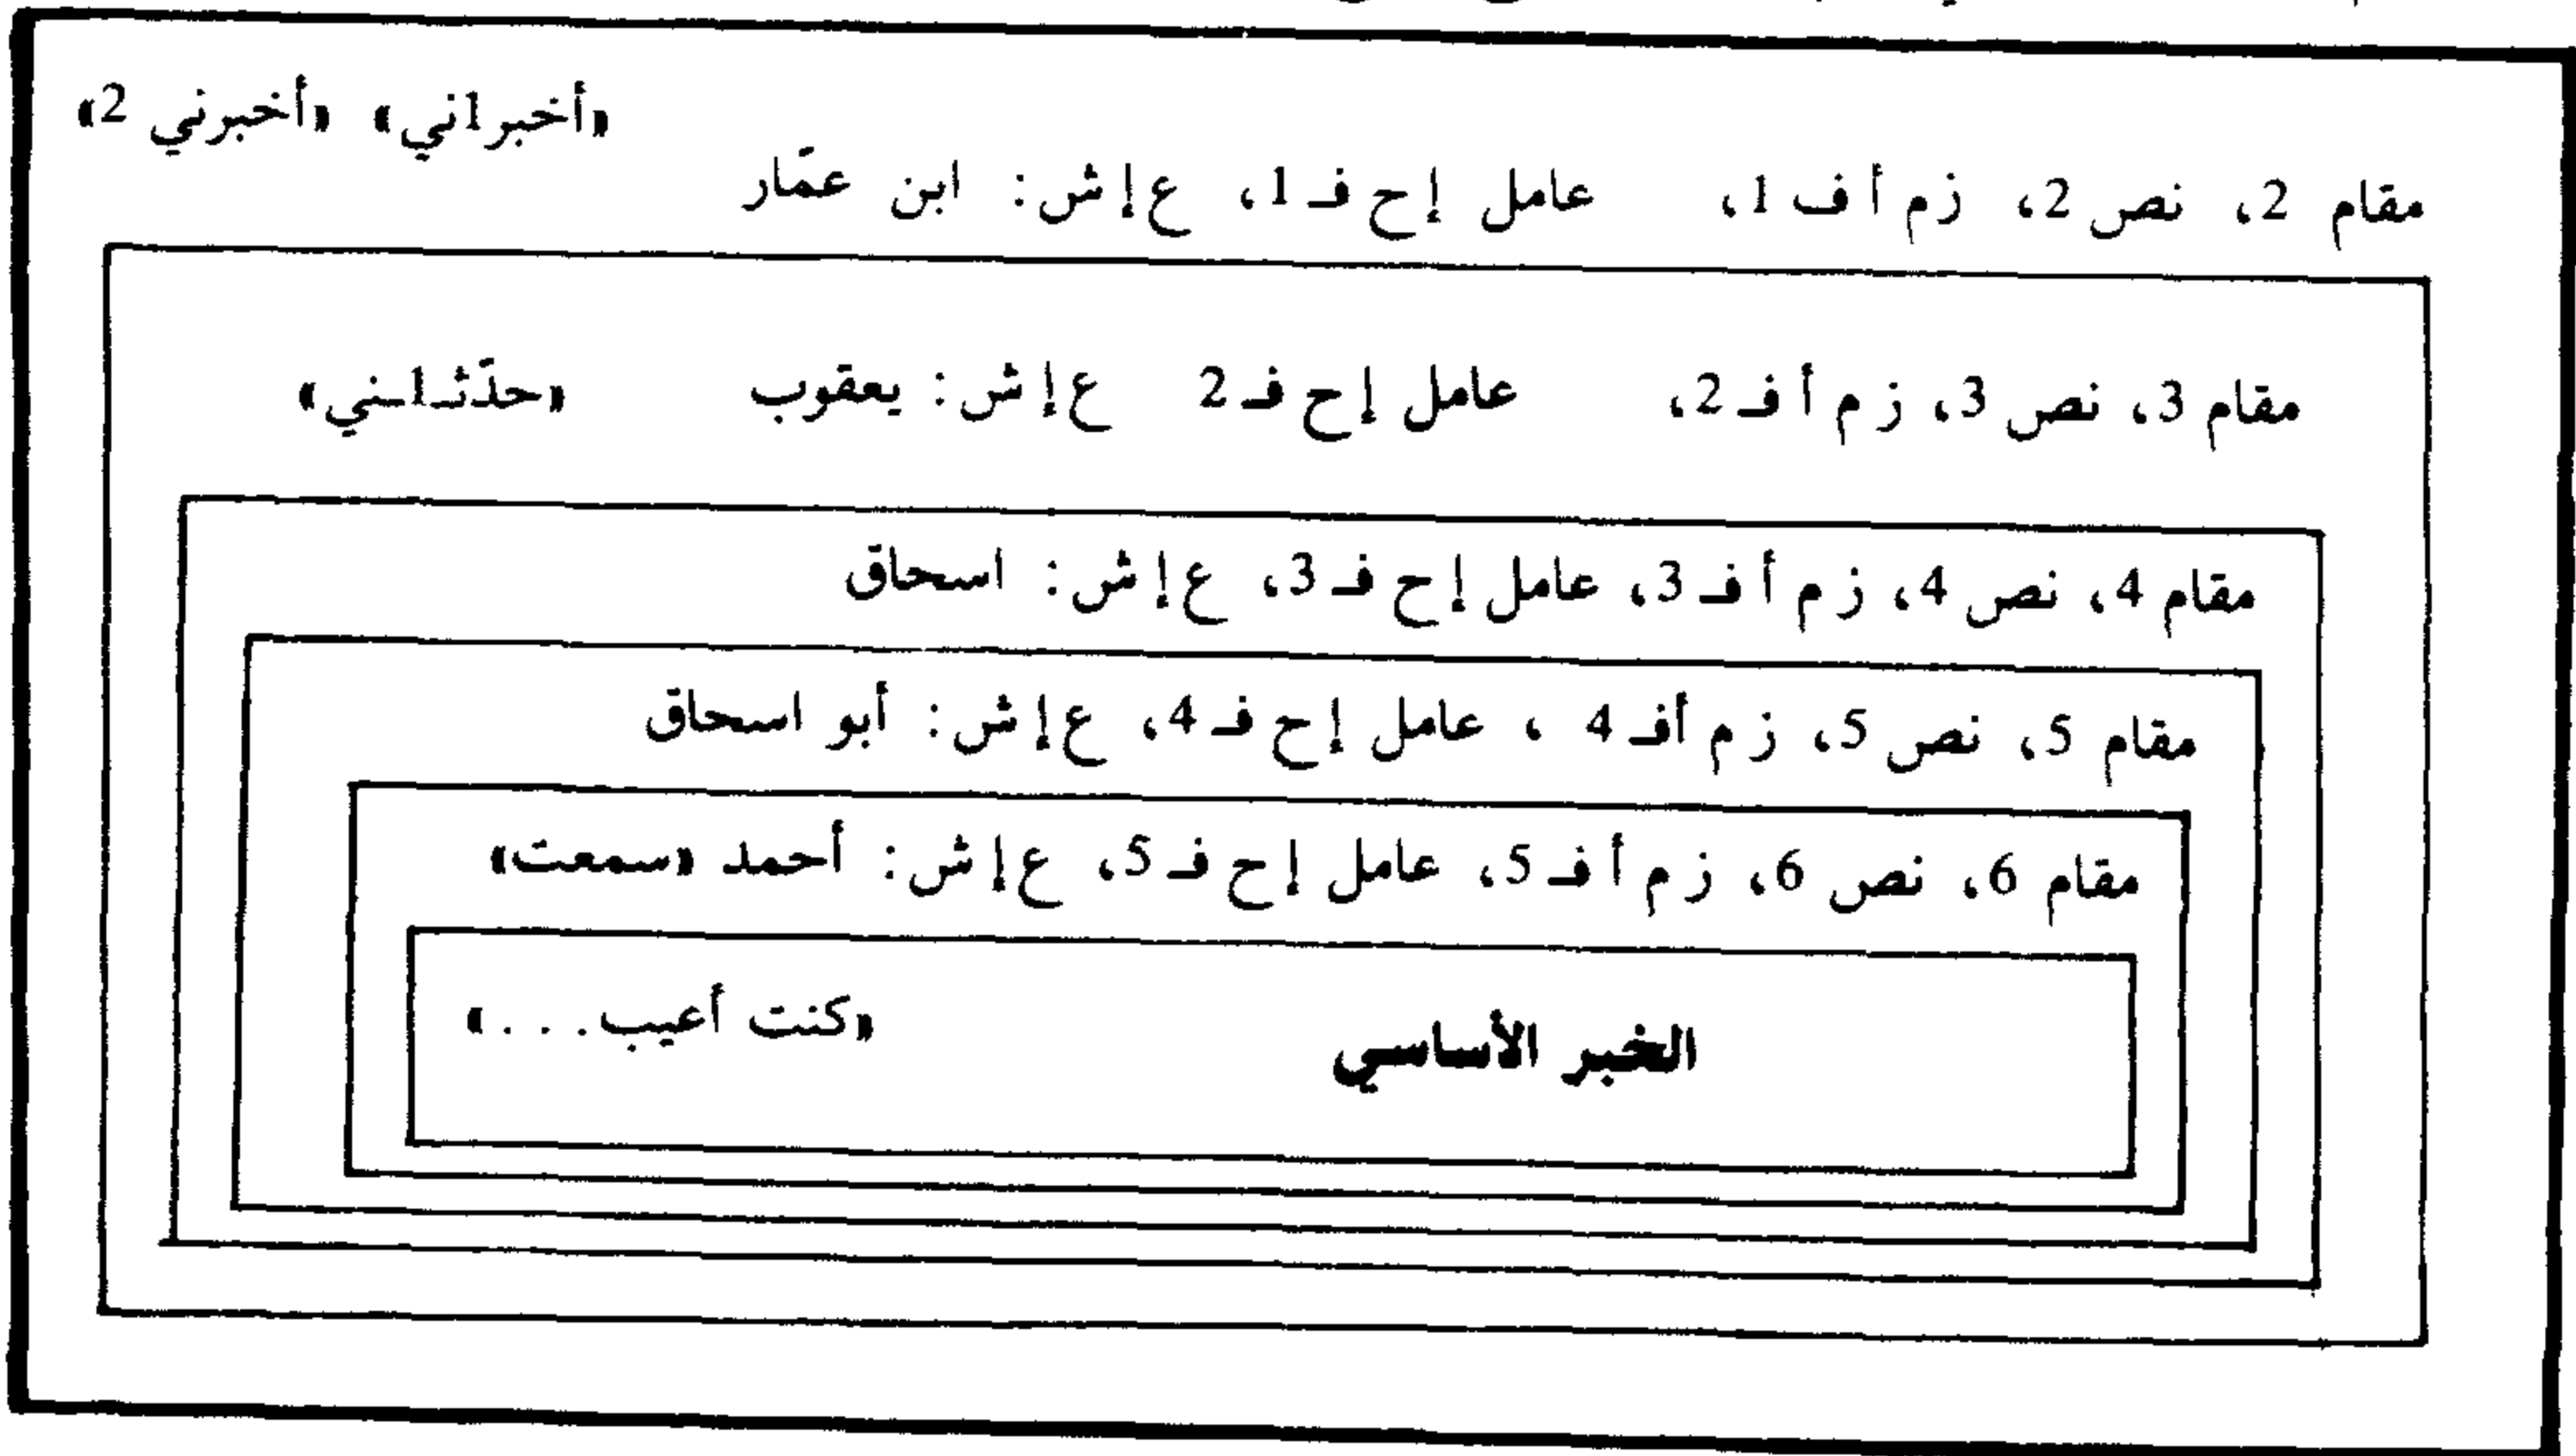 «أخبر1ني» «أخبرني 2»
مقام 2، نص 2، ز م أ ف 1، عامل إ ح فـ 1، ع إ ش: ابن عمّار
مقام 3، نص 3، ز م أ فـ 2، عامل إ ح فـ 2 ع إ ش: يعقوب «حدّثـ1ـني»
مقام 4، نص 4، ز م أ فـ 3، عامل إ ح فـ 3، ع إ ش: اسحاق
مقام 5، نص 5، ز م أفـ 4 ، عامل إ ح فـ 4، ع إ ش: أبو اسحاق
مقام 6، نص 6، ز م أ فـ 5، عامل إ ح فـ 5، ع إ ش: أحمد «سمعت»
الخبر الأساسي «كنت أعيب...»